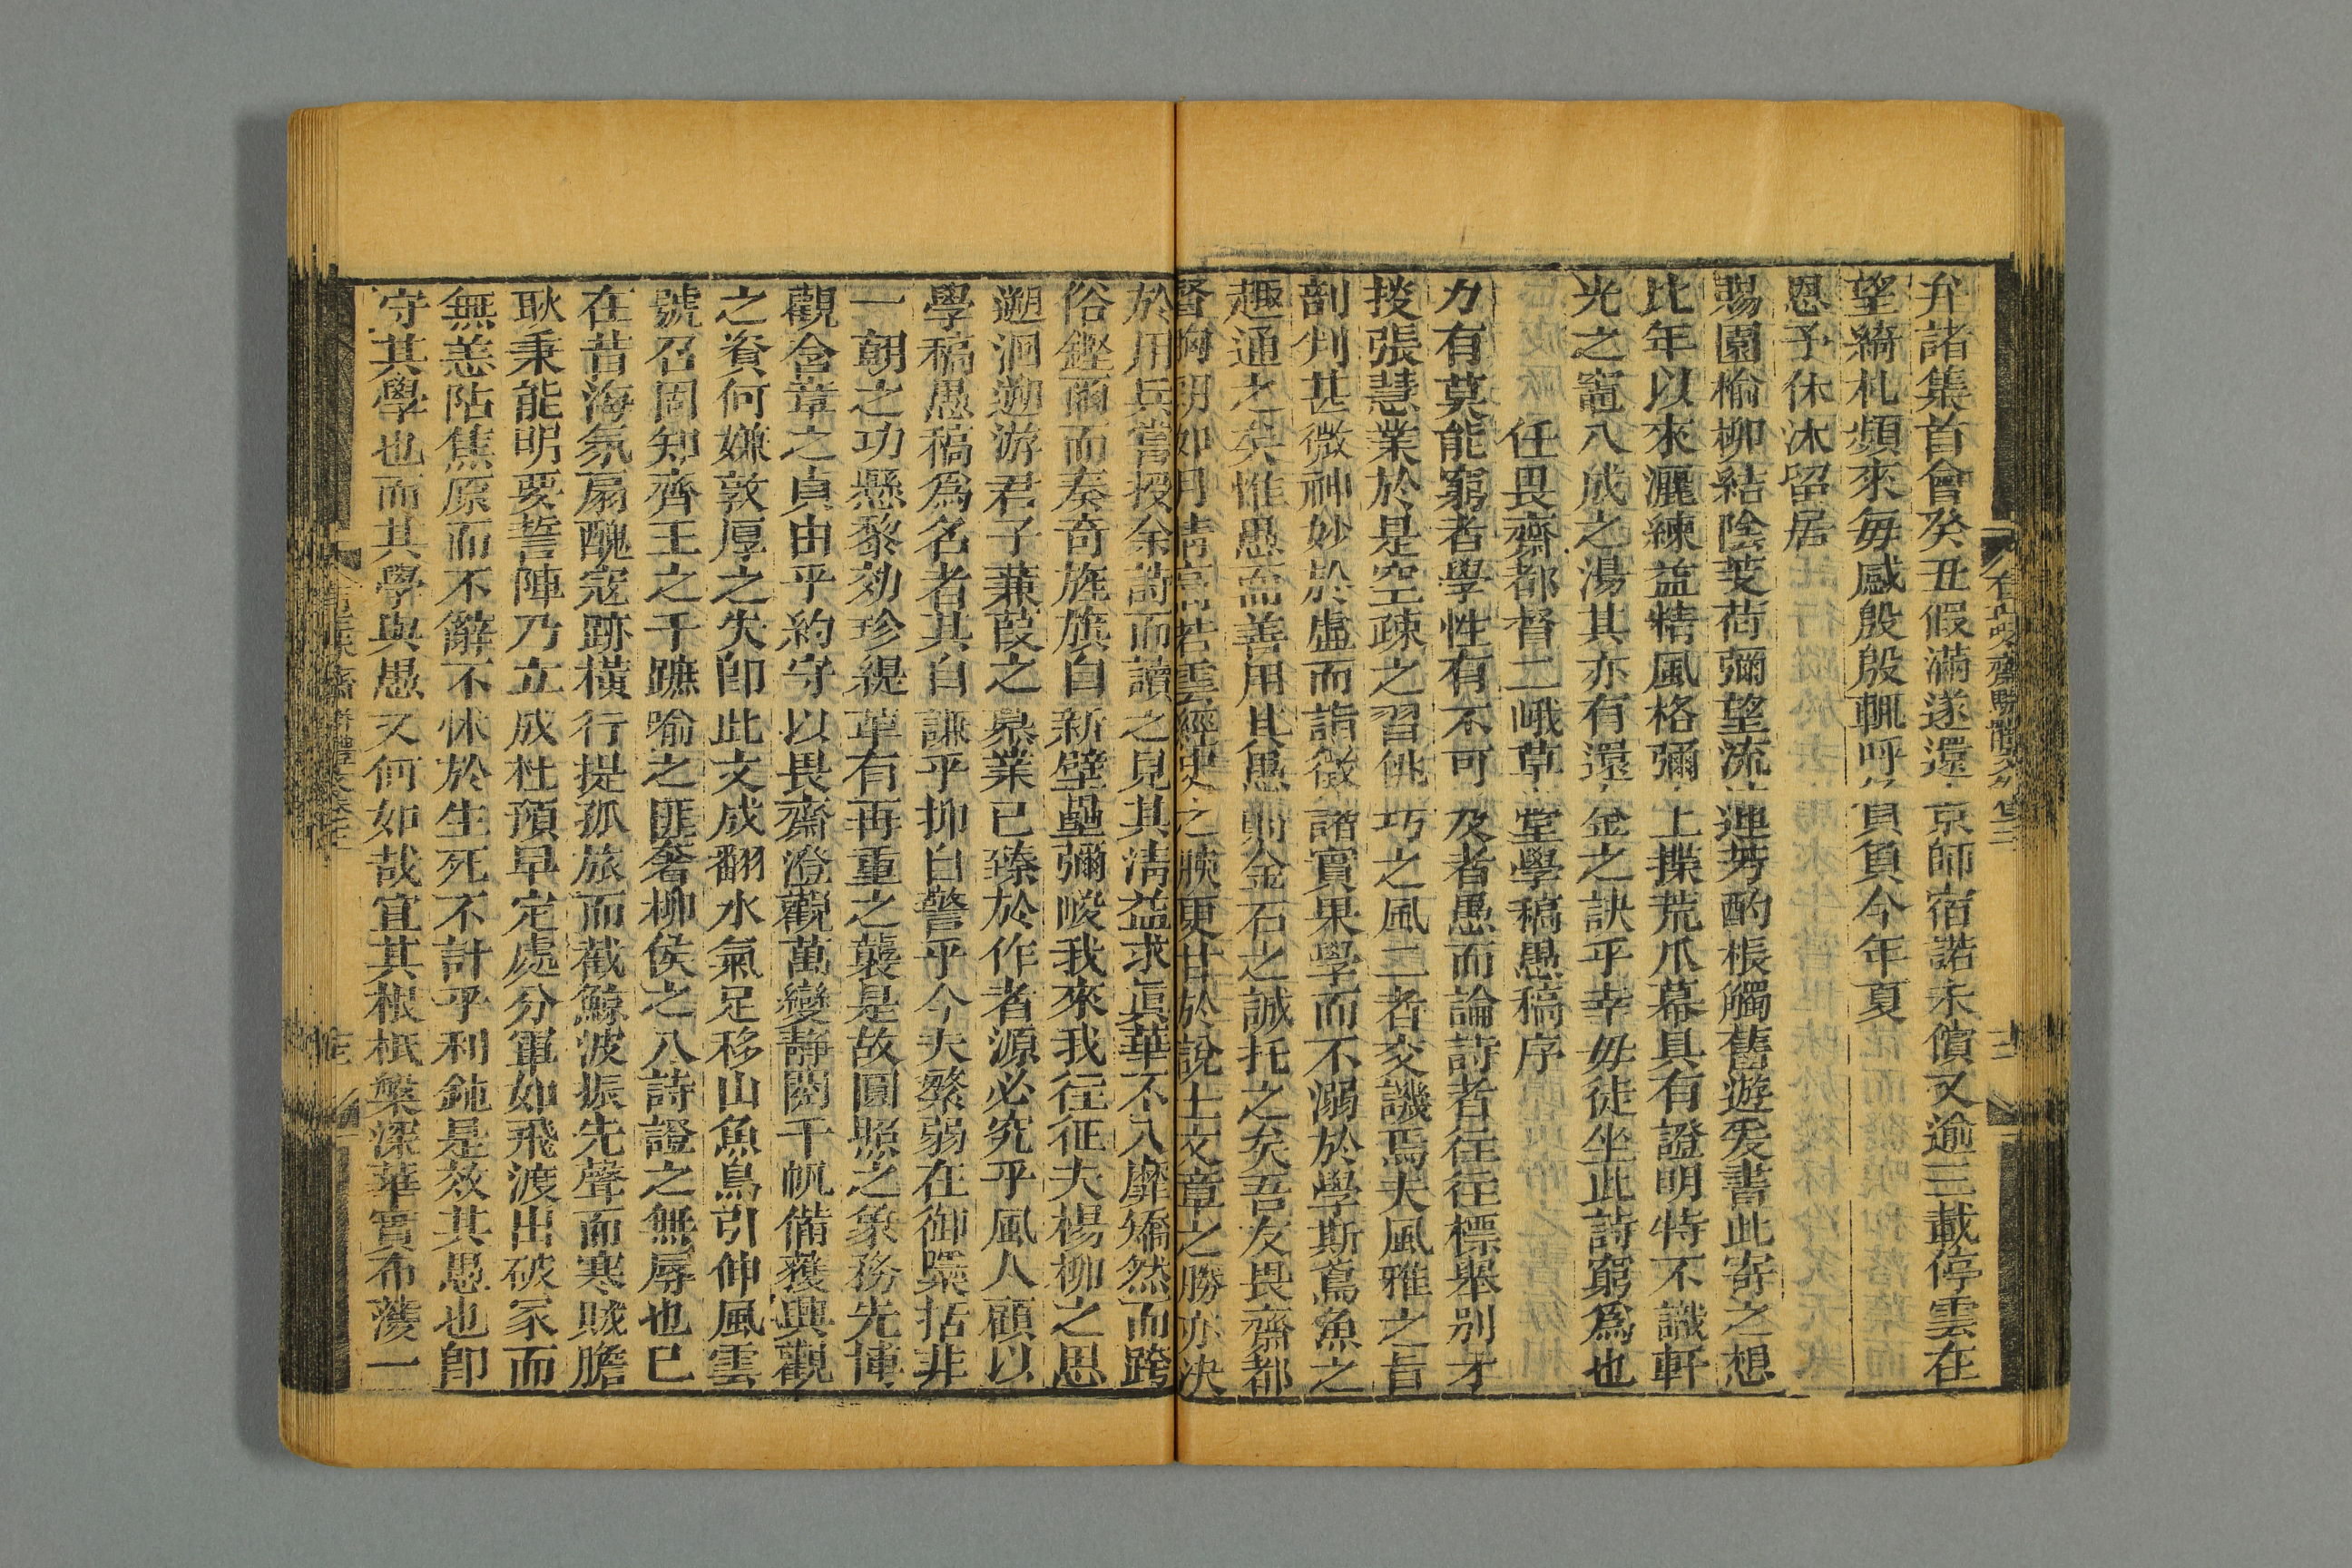 弁諸集首會癸丑假滿遂還京師宿諾未償又逾三載停雲在
望綺札頻來每感殷殷輒呼負負今年夏
恩予休沐留居
賜園榆柳結陰芰荷彌望流連芳酌棖觸舊遊爰書此寄之想
比年以來灑練益精風格彌上揲荒爪幕具有證明特不識軒
光之竈八成之湯其亦有還金之訣乎幸毋徒坐此詩窮爲也
任畏齋都督二峨草堂學稿愚稿序
力有莫能窮者學性有不可及者愚而論詩者往往標舉别才
掞張慧業於是空疎之習佻巧之風二者交譏焉夫風雅之旨
剖判甚微神妙於虛而詣徵諸實果學而不溺於學斯鳶魚之
趣通之矣惟愚而善用其愚則金石之誠托之矣吾友畏齋都
督胸朗如月情高若雲經史之腴更甘於說士文章之勝亦决
於用兵嘗投余詩而讀之見其淸益求眞華不入靡矯然而跨
俗鏗爾而奏奇旌旗自新壁壘彌峻我來我往征夫楊柳之思
遡洄遡游君子蒹葭之 業已臻於作者源必究乎風人顧以
學稿愚稿爲名者其自謙乎抑自警乎今夫檠弱在御檃括非
一朝之功懸黎効珍緹 有再重之襲是故圓照之象務先博
觀含章之貞由乎約守以畏齋澄觀萬變靜閱千帆備蒐興觀
之資何嫌敦厚之失卽此文成翻水氣足移山魚鳥引伸風雲
號召固知齊王之千蹠喻之匪奢柳侯之八詩證之無辱也已
在昔海氛扇醜寇跡橫行提孤旅而截鯨波振先聲而寒賊膽
耿秉能明要誓陣乃立成杜預早定處分軍如飛渡出破冢而
無恙阽焦原而不辭不怵於生死不計乎利鈍是效其愚也卽
守其學也而其學與愚又何如哉宜其根柢槃深華實布濩一